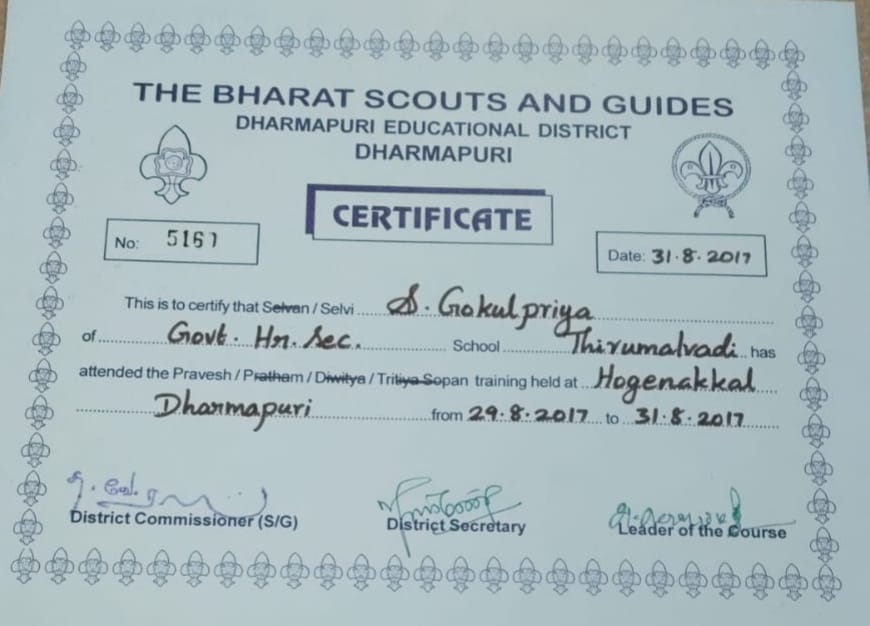 THE BHARAT SCOUTS AND GUIDES
DHARMAPURI EDUCATIONAL DISTRICT
DHARMAPURI
CERTIFICATE
No: 5167
Date: 31.8.2017
This is to certify that Selvan / Selvi S. Gokulpriya
of Govt. Hr. Sec. School Thirumalvadi has
attended the Pravesh / Pratham / Diwitya / Tritiya Sopan training held at Hogenakkal
Dharmapuri from 29.8.2017 to 31.8.2017
District Commissioner (S/G)
District Secretary
Leader of the Course